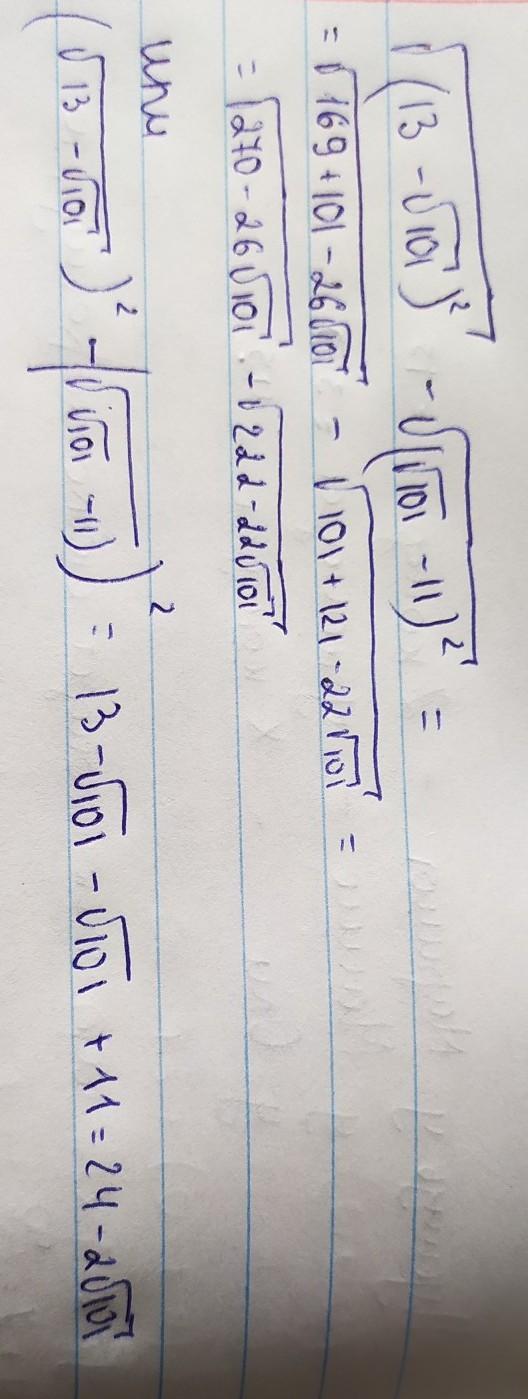 √(13 - √101)² - √(√101 - 11)² =
= √169 + 101 - 26√101 - √101 + 121 - 22√101 =
= √270 - 26√101 - √222 - 22√101
или
(√13 - √101)² - (√√101 - 11))² = 13 - √101 - √101 + 11 = 24 - 2√101